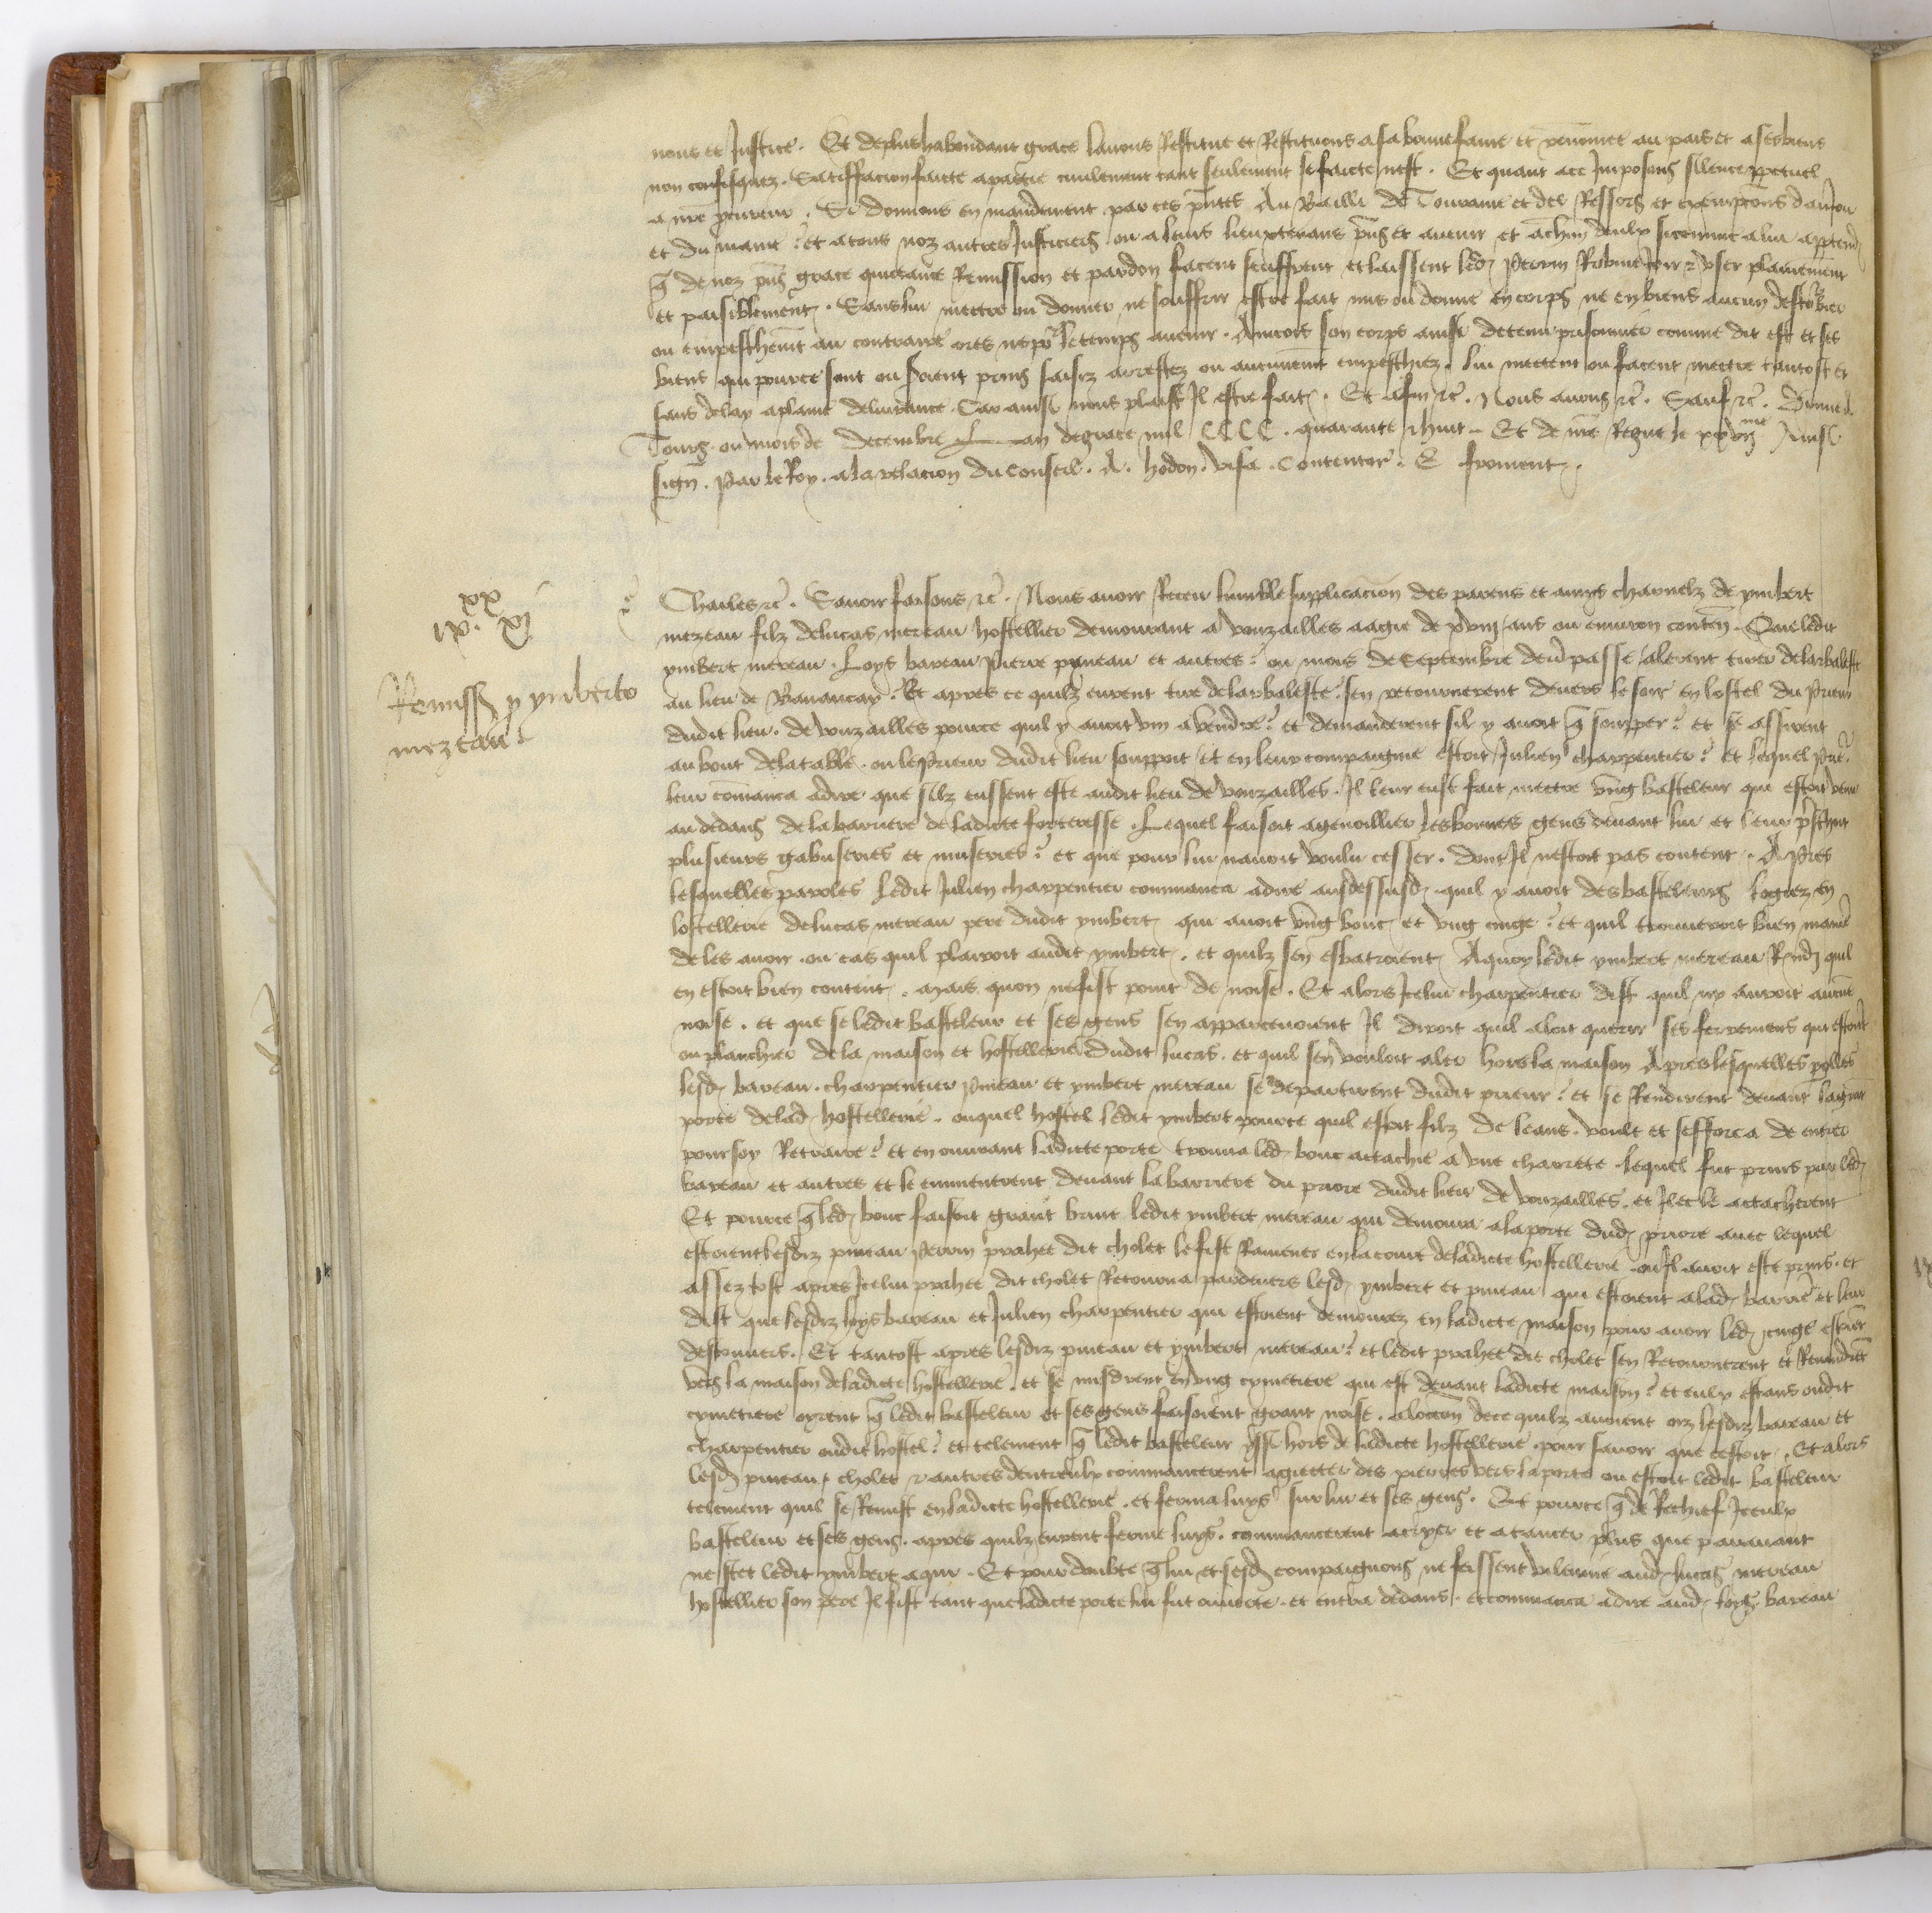 nous et Justice. Et de plus habondant grace lavons Restitue et Restituons a sa bonne fame et renōmee au pais et a ses biens
non confisquez. Satiffacion faicte a partie civilement tant seulement se faicte nest. Et quant a ce Imposons sillence ppetuel
a nrē procureur. Si donnons en mandement par ces pn̄tes Au Bailli de Touraine et des Ressors et exempcōns danjou
et du maine et a tous noz autres Justiciers ou a leurs lieuxtenans pn̄s et avenir et a chūn deulx sicomme a lui apptend
q̄ de noz pn̄s grace quictance Remission et pardon facent seuffrent et laissent led Perrin Robin Joir et user plainement
et paisiblement. Sans lui mettre ou donner ne souffrir estre fait mis ou donne en corps ne en biens aucun destorbier
ou empeschemt au contraire ores ne pour le temps avenir. Aincois son corps ainsi detenu prisonnier comme dit est et ses
biens qui pource sont ou soient prins saisiz arrestez ou aucunemt empeschiez. lui mectent ou facent mectre tantost et
sans delay a plaine delivrance. Car ainsi nous plaist Il estre fait. Et afin etc̄. Nous avons etc̄. Sauf etc̄. Donne a
Tours ou mois de decembre Lan de grace mil CCCC. quarante et huit. Et de nrē Regne le xxvijme Ainsi
sign̄. Par le Roy. a la relacion du conseil. A. hodon. visa. Contentor. E froment.
ixxx xj
Remiss p ymberto
mezeau
Charles etc̄. Savoir faisons etc̄. Nous avoir Receu lumble supplicacion des parens et amys charnelz de ymbert
mezeau filz de lucas mereau hostellier demourant a vouzailles aagie de xviij ans ou environ conten̄. Que ledit
ymbert mereau. Loys bareau Pierre pineau et autres ou mois de Septembre derr passe alerent tirer de larbaleste
au lieu de Et apres ce quilz eurent tire de larbaleste sen retournerent devers le soir en lostel du Prieur
dudit lieu. de vouzailles pource quil y avoit vin a vendre et demanderent sil y avoit q̄ soupper et se assirent
au bout de la table. ou le Prieur dudit lieu souppoit et en leur compaignie estoit Julien charpentier et lequel Prie
leur cōmanca a dire que silz eussent este audit lieu de vouzailles. Il leur eust fait mectre ung basteleur qui estoit venu
au dedans de la barriere de ladicte forteresse. Lequel faisoit agenoillier les bonnes gens devant lui et leur
plusieurs gabuseries et museries et que pour lui navoit voulu cesser. dont Il nestoit pas content. Apres
lesquelles paroles ledit Julien charpentier commanca a dire ausdessusd quil y avoit des basteleurs logiez en
lostellerie de lucas mereau pere dudit ymbert qui avoit ung bouc et ung cinge et quil trouveroit bien manie
de les avoir ou cas quil plairoit audit ymbert. et quilz sen esbatroient A quoy ledit ymbert mereau Respond quil
en estoit bien content. mais quon ne fist point de noise. Et alors Icelui charpentier dist quil ny auroit aucune
noise. et que se ledit basteleur et ses gens sen appercevoient Il diroit quil aloit querir ses ferremens qui estoient
ou planchier de la maison et hostellerie dudit lucas. et quil sen vouloit aler hors la maison Apres lesquelles polles
lesd bareau. charpentier pineau et ymbert mereau se departirent dudit prieur et se Rendirent devant la
porte de lad hostellerie. ouquel hostel ledit ymbert pource quil estoit filz de leans. voult et sefforca de entrer
pour soy Retraire et en ouvrant ladicte porte trouva led bouc actachie a une charrete lequel fut prins par led
bareau et autres et le enmenerent devant la barriere du priore dudit lieu de vouzailles. et Ilec le actacherent
Et pource q̄ led bouc faisoit grant bruit ledit ymbert mereau qui demoura a la porte dud priore avec lequel
estoient lesdiz pineau Perrin prahet dit cholet le fist Ramener en la court de ladicte hostellerie ou Il avoit este prins. et
assez tost apres Icelui prahet dit cholet Retourna pardevers lesd ymbert et pineau qui estoient a lad barrie et leur
dist que lesdiz loys bareau et Julien charpentier qui estoient demourez en ladicte maison pour avoir led cinge
Et tantost apres lesdiz pineau et ymbert mereau et ledit prahet dit cholet sen Retournerent et Revindret
vers la maison de ladicte hostellerie. et se misdrent en ung cymetiere qui est devant ladicte maison et eulx estans oudit
cymetiere oyrent q̄ ledit basteleur et ses gens faisoient grant noise. a loccon de ce quilz avoient oiz lesdiz bareau et
charpentier oudit hostel et telement q̄ ledit basteleur yssi hors de ladicte hostellerie pour savoir que cestoit. Et alors
lesd pineau cholet et autres dentreulx commancerent a giecter des pierres vers la porte ou estoit ledit basteleur
telement quil se Remist en ladicte hostellerie. et ferma luys sur lui et ses gens. Et pource q̄ de Rechief Iceulx
basteleur et ses gens. apres quilz eurent ferme luys. commancerent a cryer et a tancer plus que paravant
ne scet ledit ymbert a qui. Et pour doubte q̄ lui et sesd compaignons ne feissent vilennie aud lucas mereau
hostellier son pere Il fist tant que ladicte porte lui fut ouverte. et entra dedans. et commanca a dire aud loys bareau